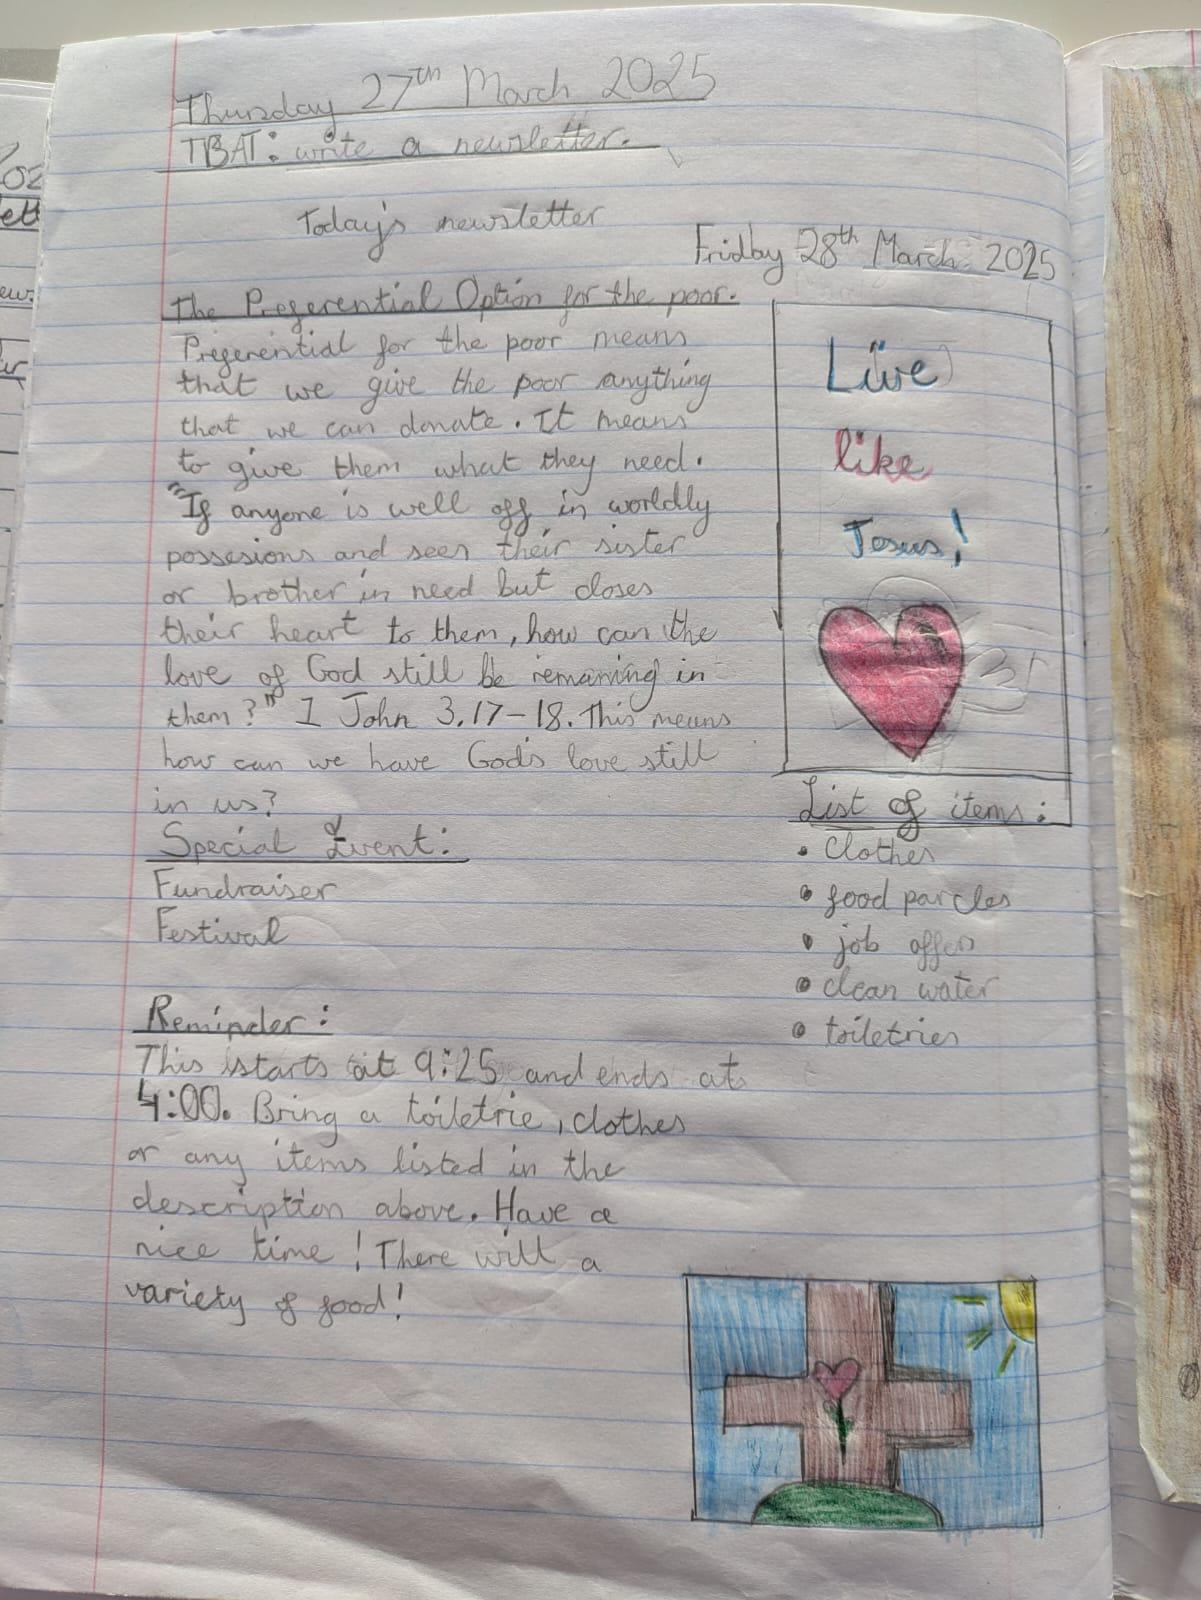 Thursday 27th March 2025
TBAT: write a newsletter.
Today's newsletter
Fridby 28th March 2025
The Pregerential Option for the poor.
Pregerential for the poor means
that we give the poor anything
that we can donate. It means
to give them what they need.
"If anyone is well off in worldly
possesions and sees their sister
or brother in need but closes
their heart to them, how can the
love of God still be remaining in
them?" 1 John 3,17-18. This means
how can we have God's love still
in us?
Special Event:
Fundraiser
Festival
Reminder:
This starts at 9:25 and ends at
4:00. Bring a toiletrie, clothes
or any items listed in the
description above. Have a
nice time! There will a
variety of food!
Live
like
Jesus!
List of items:
• Clothes
• food parcles
• job offers
• clean water
• toiletries